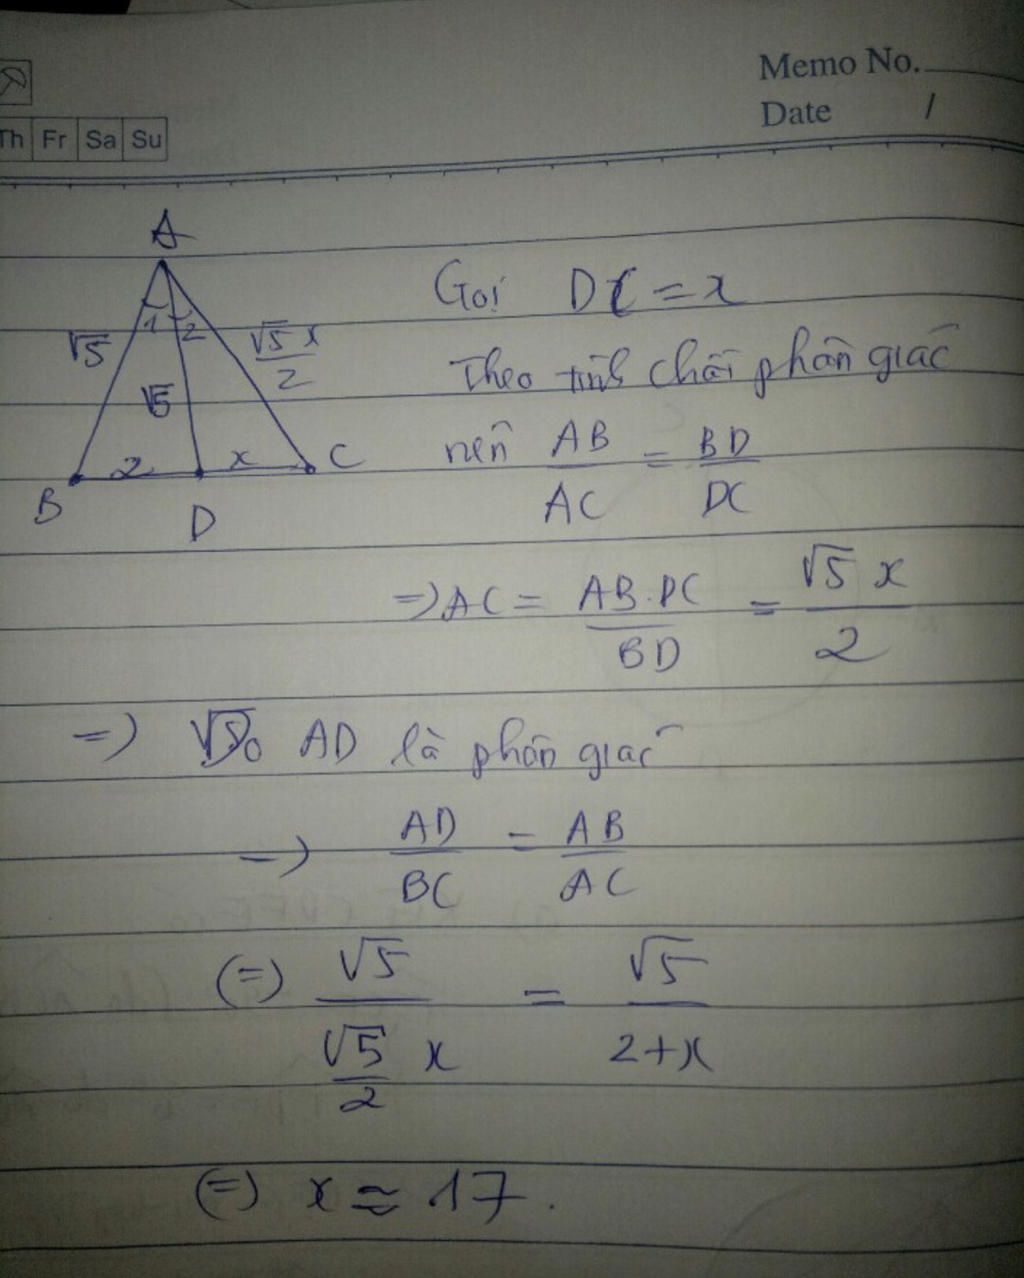 Memo No.
Th Fr Sa Su
Date /
A
√5
1 2
√5 x / 2
√5
2
x
B
D
C
Gọi DC = x
Theo tính chất phân giác
nên AB/AC = BD/DC
=> AC = AB.DC/BD = √5 x/2
=> Do AD là phân giác
=> AD/BC = AB/AC
(=) √5 / (√5/2 x) = √5 / (2+x)
(=) x ≈ 17.